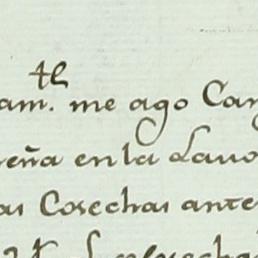 th
am. me ago Car
eña en la Lavo
as Cosechas ante